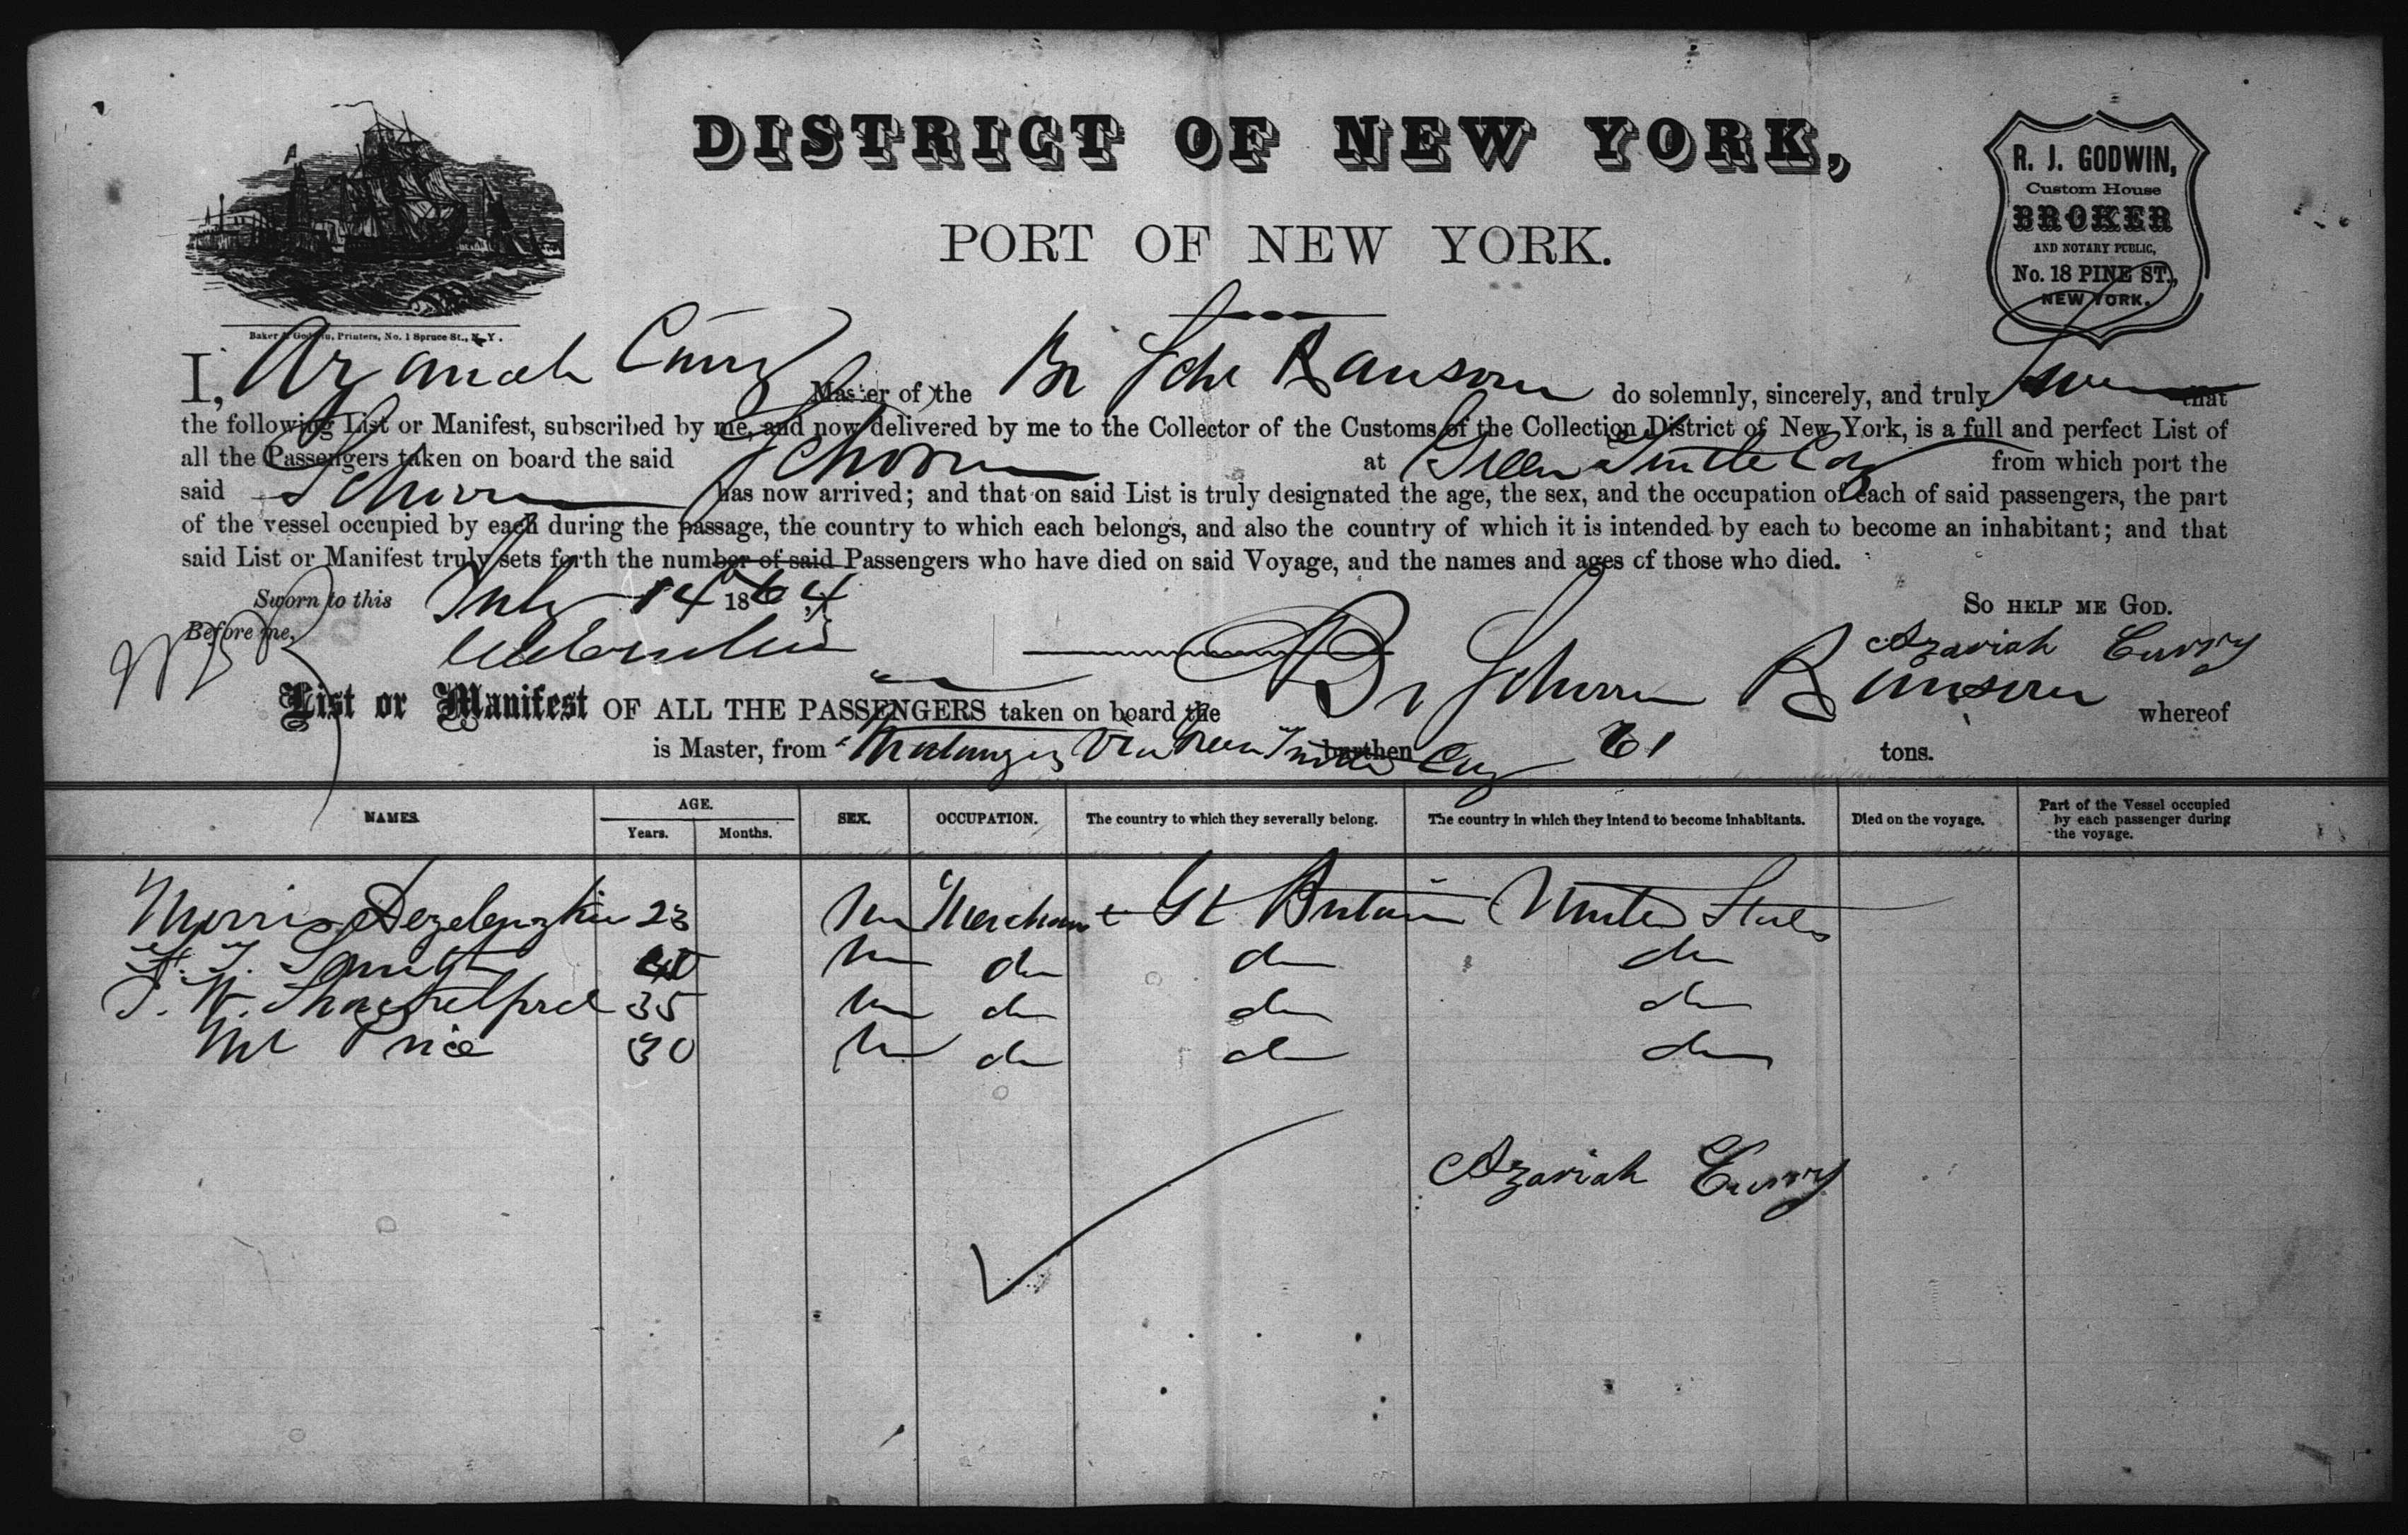 DISTRICT OF NEW YORK,
PORT OF NEW YORK.
R. J. GODWIN,
Custom House
BROKER
AND NOTARY PUBLIC,
No. 18 PINE ST.,
NEW YORK.
Baker & Godwin, Printers, No. 1 Spruce St., N. Y.
I, Azariah Curry Master of the Br Schr Ransom do solemnly, sincerely, and truly swear that
the following List or Manifest, subscribed by me, and now delivered by me to the Collector of the Customs of the Collection District of New York, is a full and perfect List of
all the Passengers taken on board the said Schooner at Green Turtle Cay from which port the
said Schooner has now arrived; and that on said List is truly designated the age, the sex, and the occupation of each of said passengers, the part
of the vessel occupied by each during the passage, the country to which each belongs, and also the country of which it is intended by each to become an inhabitant; and that
said List or Manifest truly sets forth the number of said Passengers who have died on said Voyage, and the names and ages of those who died.
Sworn to this July 14 1864
So HELP ME GOD.
Before me,
Azariah Curry
List or Manifest OF ALL THE PASSENGERS taken on board the Br Schooner Ransom whereof
is Master, from Matanzas Via Green Turtle Cay burthen 61 tons.
NAMES AGE. SEX. OCCUPATION. The country to which they severally belong. The country in which they intend to become inhabitants. Died on the voyage. Part of the Vessel occupied by each passenger during the voyage.
Years. Months.
Morris 23 M Merchant Gt Britain United States
H. T. Smith 40 M do do do
J. W. 35 M do do do
Mr Price 30 M do do do
Azariah Curry